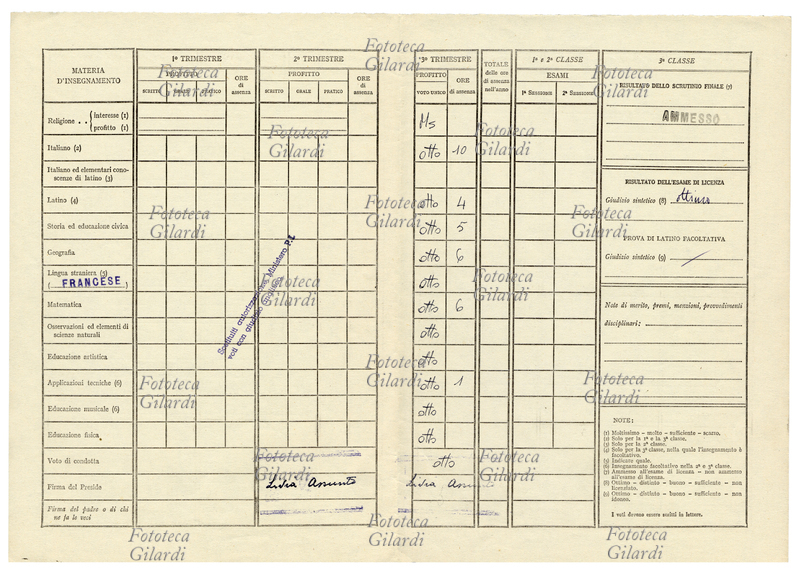 MATERIA
D'INSEGNAMENTO
1º TRIMESTRE
PROFITTO
SCRITTO
ORALE
PRATICO
ORE
di
assenza
2º TRIMESTRE
PROFITTO
SCRITTO
ORALE
PRATICO
ORE
di
assenza
3º TRIMESTRE
PROFITTO
VOTO UNICO
ORE
di assenza
TOTALE
delle ore
di assenza
nell'anno
1ª e 2ª CLASSE
ESAMI
1ª Sessione
2ª Sessione
3ª CLASSE
RISULTATO DELLO SCRUTINIO FINALE (7)
AMMESSO
RISULTATO DELL'ESAME DI LICENZA
Giudizio sintetico (8) ottimo
PROVA DI LATINO FACOLTATIVA
Giudizio sintetico (9)
Note di merito, premi, menzioni, provvedimenti
disciplinari:
Religione . . { Interesse (1)
profitto (1)
Ms
Italiano (2) otto 10
Italiano ed elementari cono-
scenze di latino (3)
Latino (4) otto 4
Storia ed educazione civica otto 5
Geografia otto 6
Lingua straniera (5) otto
( FRANCESE )
Matematica otto 6
Osservazioni ed elementi di
scienze naturali
otto
Educazione artistica otto
Applicazioni tecniche (6) otto 1
Educazione musicale (6) otto
Educazione fisica otto
Voto di condotta otto
Firma del Preside Lidia Assunto
Firma del padre o di chi
ne fa le veci
voti con giudizio
NOTE:
(1) Moltissimo - molto - sufficiente - scarso.
(2) Solo per la 1ª e la 3ª classe.
(3) Solo per la 2ª classe.
(4) Solo per la 3ª classe, nella quale l'insegnamento è
facoltativo.
(5) Indicare quale.
(6) Insegnamento facoltativo nella 2ª e 3ª classe.
(7) Ammesso all'esame di licenza - non ammesso
all'esame di licenza.
(8) Ottimo - distinto - buono - sufficiente - non
licenziato.
(9) Ottimo - distinto - buono - sufficiente - non
idoneo.
I voti devono essere scritti in lettere.
Fototeca
Gilardi